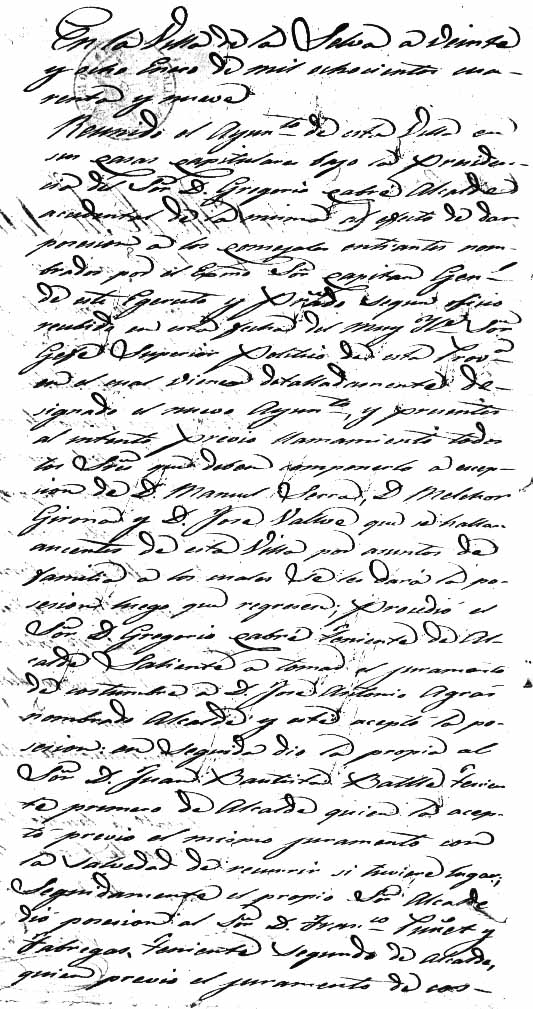 En la Villa de la Selva a veinte
y ocho Enero de mil ochocientos cua-
renta y nueve
Reunido el Ayunto de esta Villa en
sus casas capitulares bajo la presiden-
cia del Sor D. Gregorio Cabré Alcalde
accidental de la misma al efecto de dar
posesion a los consejales entrantes nom-
brados por el Exmo Sor Capitan Genl
de este Egercito y Prindo segun oficio
recibido en esta fecha del Muy Ile Sor
Gefe Superior Politico de esta Prova
en el cual viene detalladamente de-
signado el nuevo Ayunto, y presentes
al intento previo llamamiento todos
los Sres que deben componerlo a excep-
cion de D. Manuel Serra, D. Melchor
Girona y D. José Vallve que se hallan
aucentes de esta Villa por asuntos de
familia a los cuales se les dará la po-
sesion luego que regresen, procedio el
Sor D. Gregorio Cabré Teniente de Al-
calde Saliente a tomar el juramento
de costumbre a D. José Antonio
nombrado Alcalde y este acepto la po-
sesion: en seguida dio la propia al
Sor D. Juan Bautista Batlle Tenien-
te primero de Alcalde quien la acep-
to previo el mismo juramento con
la salvedad de recurrir si tuviere lugar,
Seguidamente el propio Sor Alcalde
dió posesion al Sor D. Franco Puñet y
Fabregas, Teniente segundo de Alcalde,
quien previo el juramento de cos-